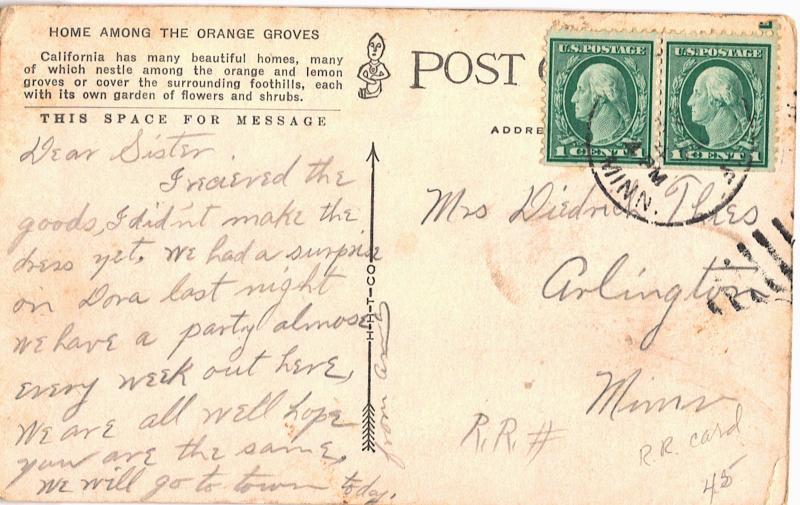 HOME AMONG THE ORANGE GROVES
California has many beautiful homes, many
of which nestle among the orange and lemon
groves or cover the surrounding foothills, each
with its own garden of flowers and shrubs.
THIS SPACE FOR MESSAGE
Dear Sister.
I recieved the
goods, I didn't make the
dress yet. We had a surprise
on Dora last night
We have a party almose
every week out here,
We are all well hope
you are the same.
We will go to town today.
from
H-H-T-CO
POST
ADDRE
U.S. POSTAGE
1 CENT
U.S. POSTAGE
1 CENT
PM
MINN.
Mrs Diedrick Thies
Arlington
Minn
R.R. #
R.R. card
45